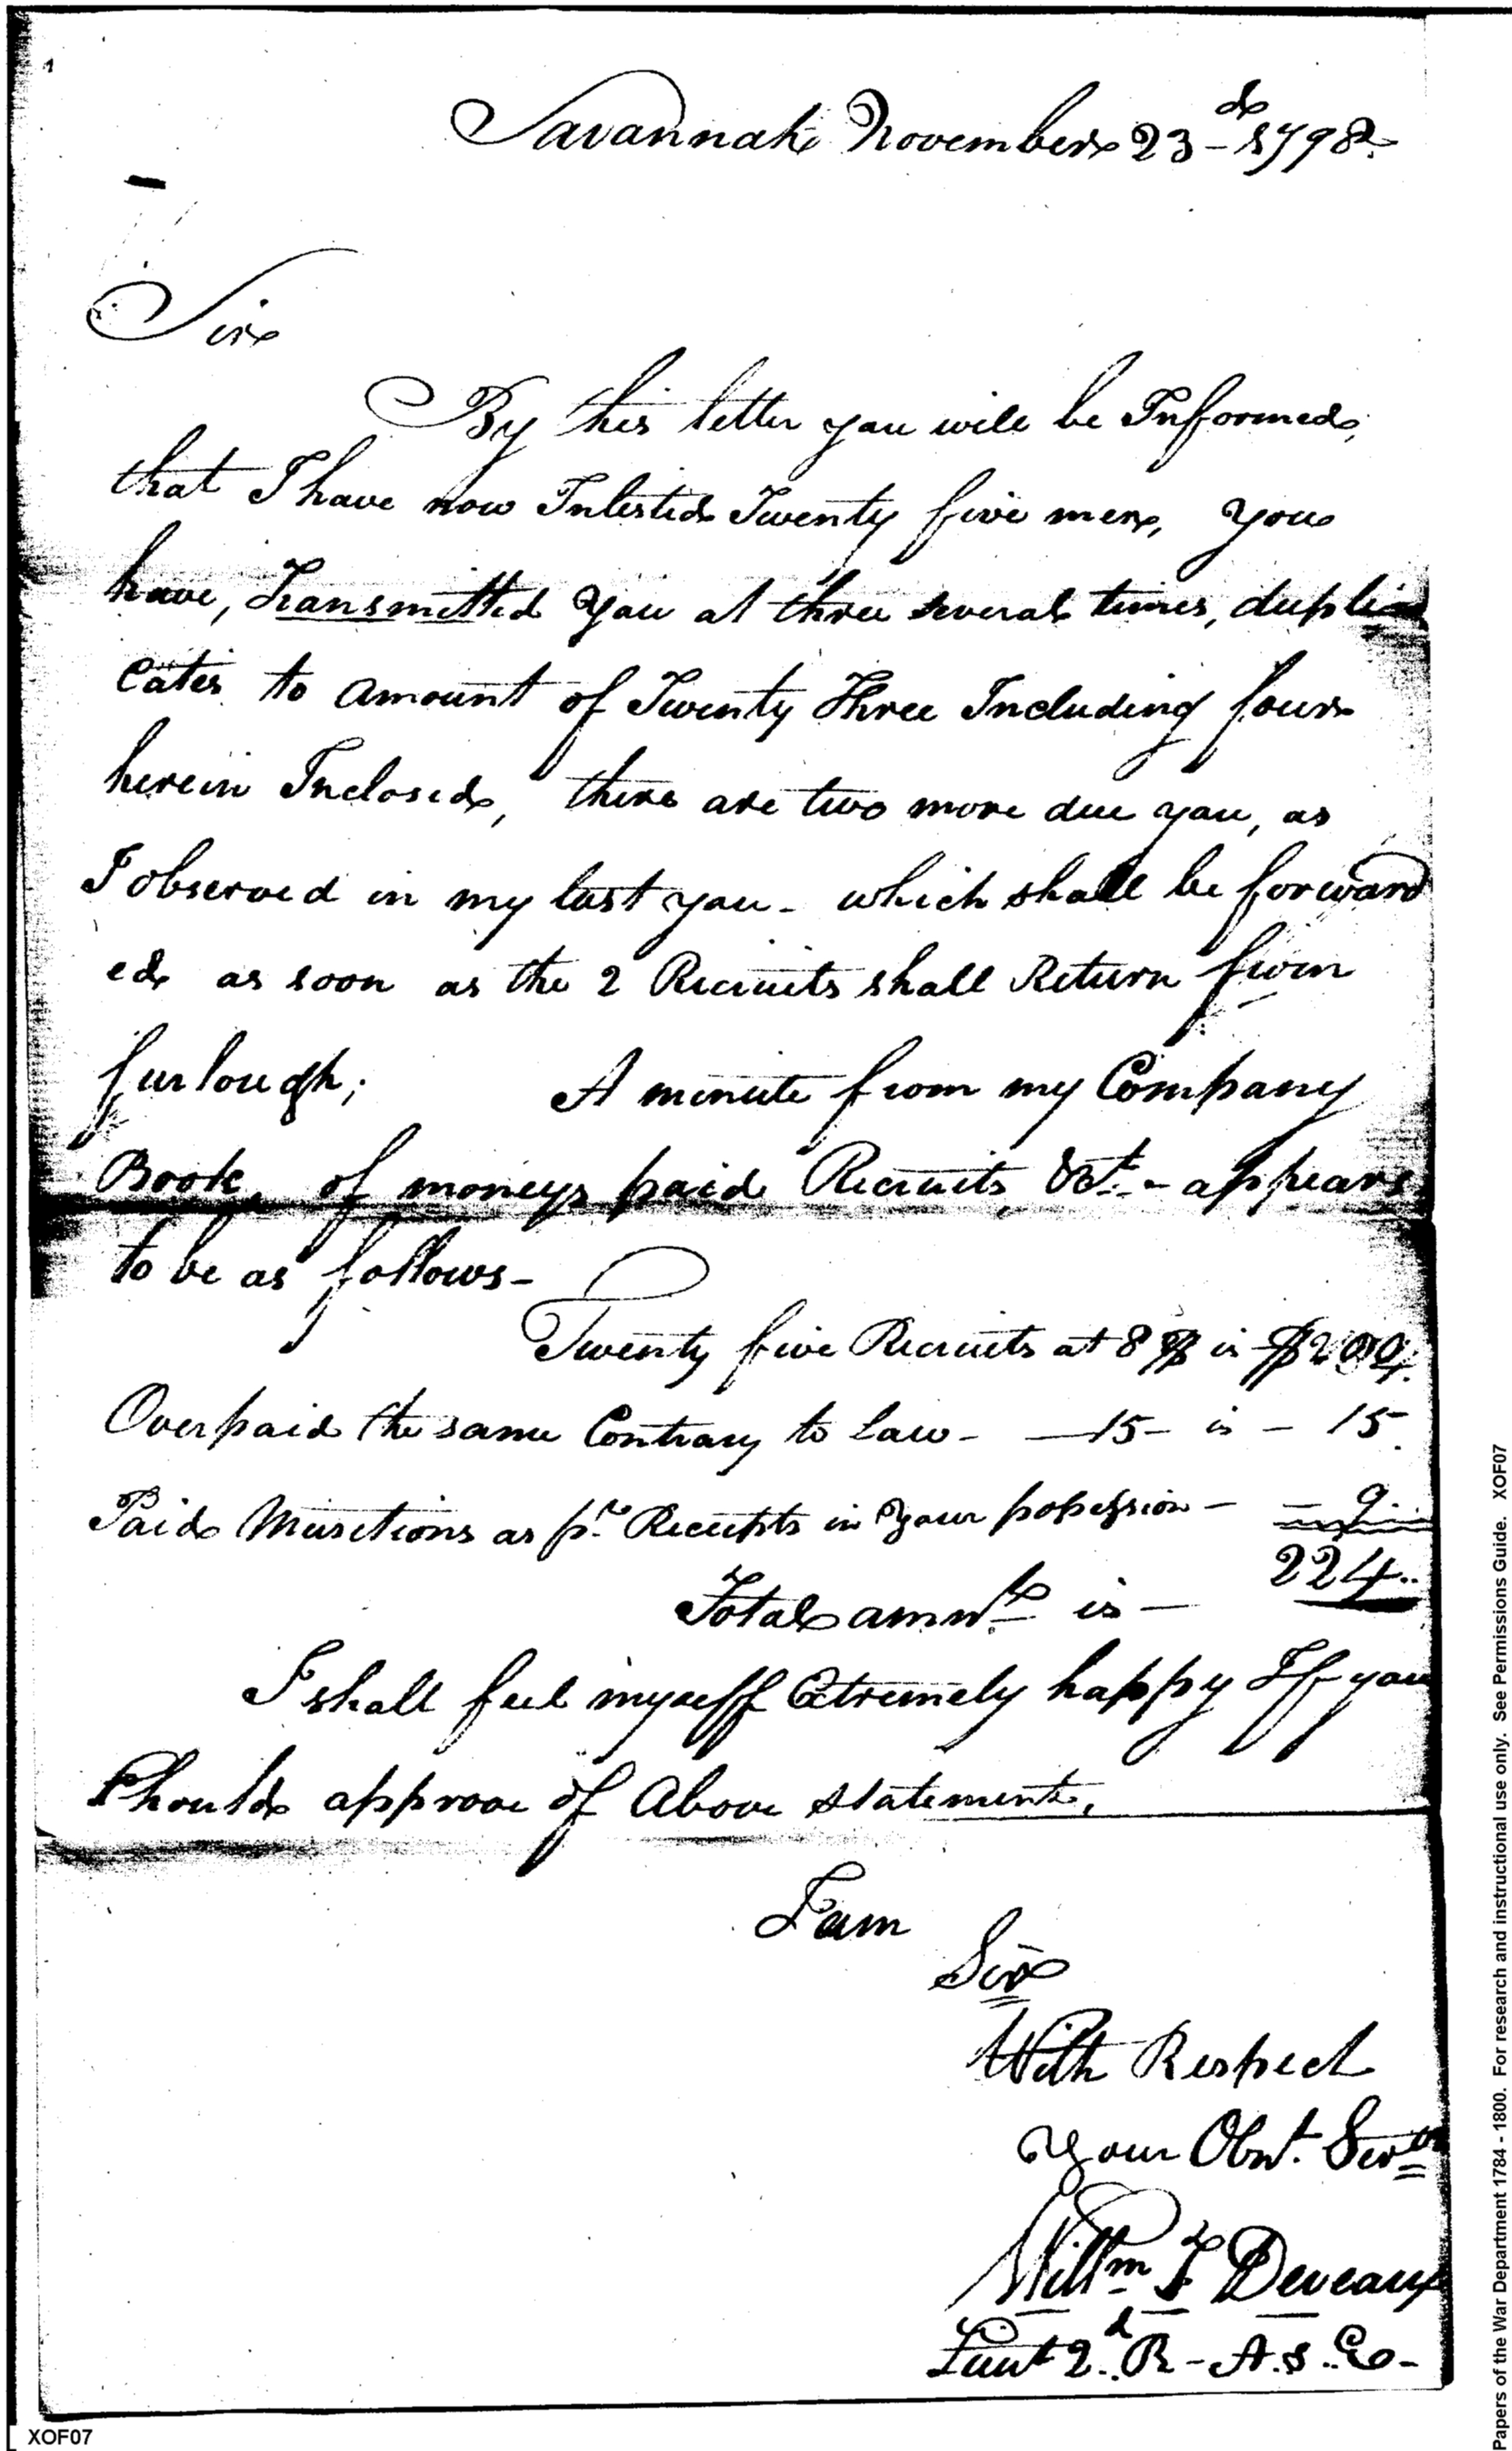 1
Savannah November 23d 1798.
Sir
By this letter you will be Informed,
that I have now Inlisted Twenty five men, you
have, Transmitted you at three several times, dupli
cates to amount of Twenty Three Including four
herein Inclosed, there are two more due you, as
I observed in my last you - which shall be forward
ed as soon as the 2 Recruits shall Return from
furlough; A minute from my Company
Book, of moneys paid Recruits &ct. - appears
to be as follows -
Twenty five Recruits at 8 $ is $200.
Overpaid the same Contrary to Law - — 15 - is - 15.
Paid Musitions as pr. Receipts in your possession - - 9..
Total amnt. is - 224..
I shall feel myself Extremely happy If you
Should approve of Above statement,
I am
Sir
With Respect
your Obnt. Servt
Willm. F Deveaux
Lieut 2d. R - A. & E -
XOF07
Papers of the War Department 1784 - 1800. For research and instructional use only. See Permissions Guide. XOF07